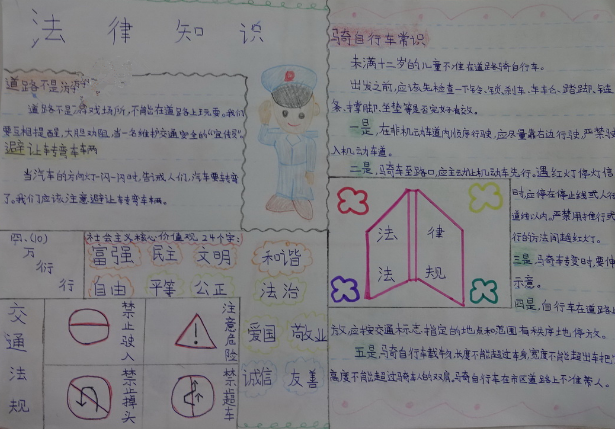 法律知识
道路不是游
道路不是游戏场所,不能在道路上玩耍。我们
要互相提醒,大胆劝阻,当一名维护交通安全的“宣传员”。
避让转弯车辆
当汽车的方向灯一闪一闪时,告诫人们,汽车要转弯
了。我们应该注意避让转弯车辆。
四、(10)
万
行
行
社会主义核心价值观24个字:
富强 民主 文明 和谐
自由 平等 公正 法治
爱国 敬业
诚信 友善
交通法规
禁止驶入
注意危险
禁止掉头
禁止超车
骑自行车常识
未满十二岁的儿童不准在道路骑自行车。
出发之前,应该先检查一下铃、锁、刹车、车车胎、踏脚、链
条、才掌脚、坐垫等是否完好有效。
一是,在非机动车道内顺序行驶,应尽量靠右边行驶,严禁驶
入机动车道。
二是,骑车至路口,应主动让机动车先行。遇红灯停灯信
时,应停在停止线或人行
道线以内。严禁用推行或
行的方法闯越红灯。
三是,骑车转弯时,要伸
示意。
四是,自行车在道路上
放,应按交通标志指定的地点和范围有秩序地停放。
五是,骑自行车载物,长度不能超过车身,宽度不能超出车把
高度不能超过骑车人的双肩,骑自行车在市区道路上不准带人。
法律
法规